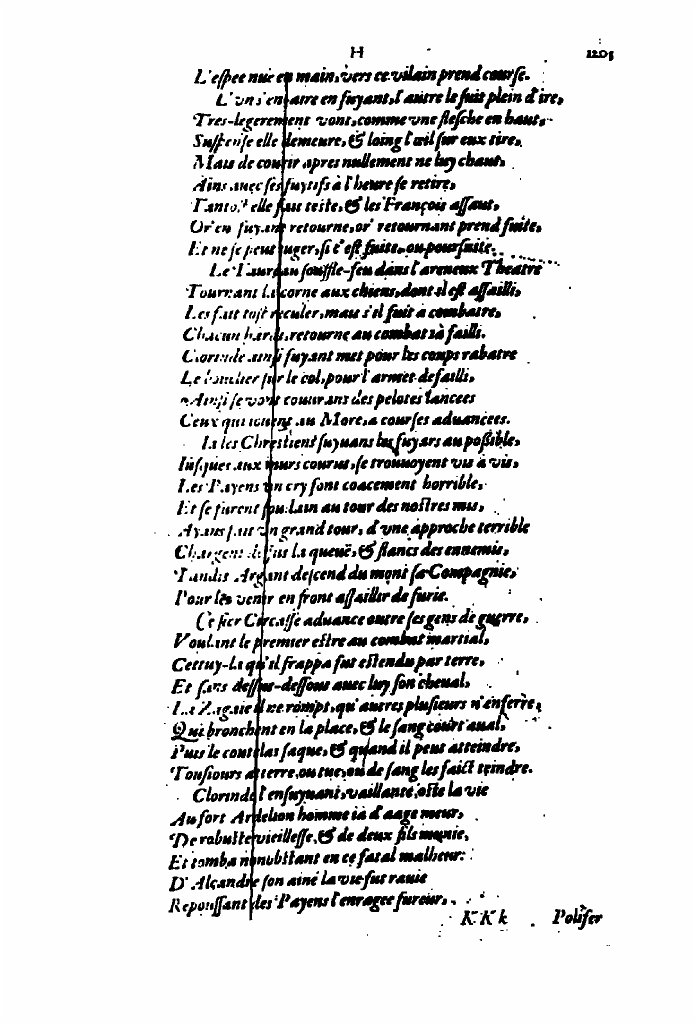 H 1205
L'espee nue en main, vers ce vilain prend course.
L'vn s'en entre en fuyant, l'autre le suit plein d'ire,
Tres-legerement vont, comme vne flesche en haut,
Suspense elle demeure, & loing l'œil sur eux tire,
Mais de courir apres nullement ne luy chaut,
Ains auec ses fuytifs à l'heure se retire,
Tantost elle fait teste, & les François assaut,
Or' en fuyant retourne, or' retournant prend fuite,
Et ne se peut iuger, si c'est fuite, ou poursuite.
Le Taureau souffle-feu dans l'areneux Theatre
Tournant la corne aux chiens, dont il est assailli,
Les fait tost reculer, mais s'il fuit à combatre,
Chacun hardi, retourne au combat ià failli.
Clorinde ainsi fuyant met pour les coups rabatre
Le bouclier sur le col, pour l'armet defailli,
Ainsi se vont couurans des pelotes lancees
Ceux qui iouent au More, a courses aduancees.
Ia les Chrestiens suyuans les fuyars au possible,
Iusques aux murs courus, se trouuoyent vis à vis,
Les Payens vn cry font coacement horrible,
Et se furent soudain au tour des nostres mis,
Ayans fait vn grand tour, d'vne approche terrible
Chargent dessus la queuë, & flancs des ennemis,
Tandis Argant descend du mont sa Compagnie,
Pour les venir en front assaillir de furie.
Ce fier Circasse aduance outre ses gens de guerre,
Voulant le premier estre au combat martial,
Cettuy-la qu'il frappa fut estendu par terre,
Et sans dessus-dessous auec luy son cheual,
La Zagaie se rompt, qu'autres plusieurs n'enferre,
Qui bronchent en la place, & le sang court aual,
Puis le coutelas saque, & quand il peut atteindre,
Tousiours atterre, ou tue, ou de sang les faict teindre.
Clorinde l'ensuyuant, vaillante, oste la vie
Au fort Ardelion homme ià d'aage meur,
De robuste vieillesse, & de deux fils munie,
Et tomba nonobstant en ce fatal malheur:
D'Alcandre son ainé la vie fut rauie
Repoussant des Payens l'enragee fureur,
KKk Polifer